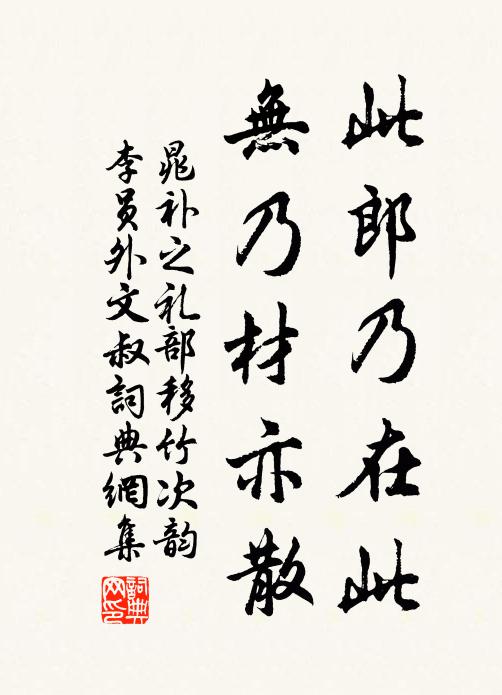 此郎乃在此
無乃材亦散
晁补之礼部移竹次韵
李員外文叔詞典網集
詞典網印